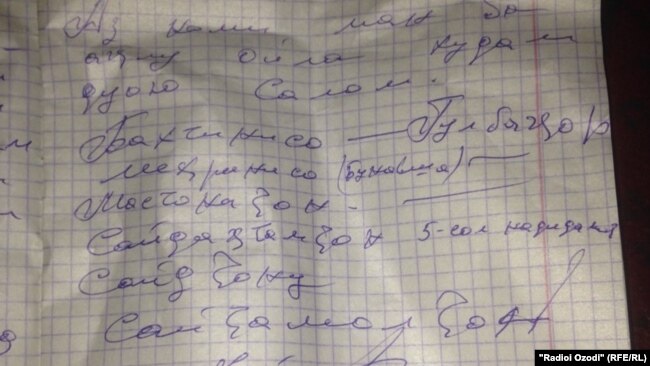 Аз номи ман ба
аҳлу оила кудат
дуою Салом.
Бахтинисо — Гулбаҳор
меҳринисо (Бунавша) —
Мастонаҷон. —
Сайдаъзамҷон 5-сол надидаам
Саидҷону
Саиҷамолҷон
"Radioi Ozodi" (RFE/RL)